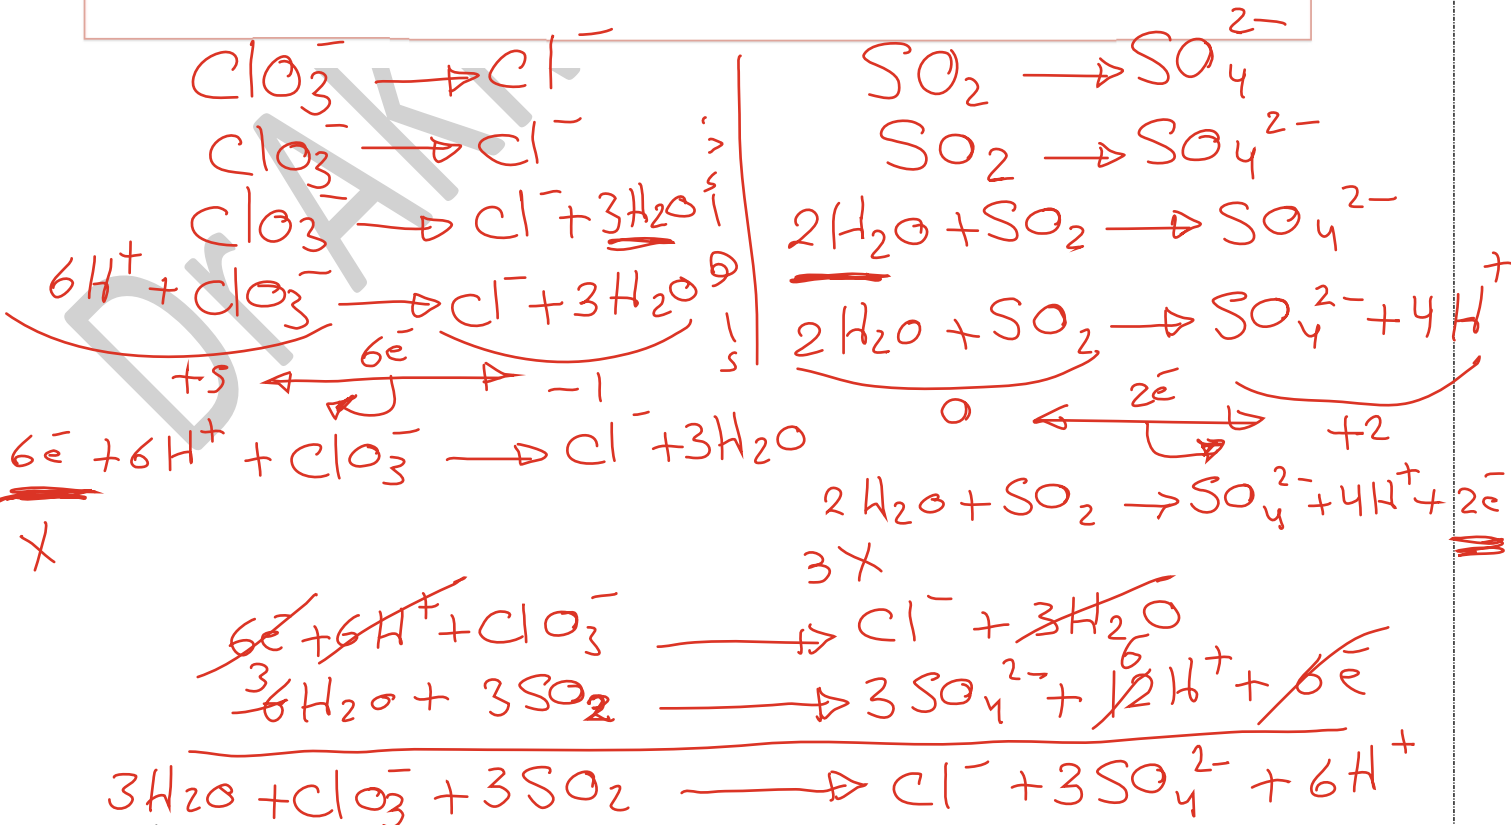 ClO₃⁻ → Cl⁻
ClO₃⁻ → Cl⁻
ClO₃⁻ → Cl⁻ + 3H₂O
6H⁺ + ClO₃⁻ → Cl⁻ + 3H₂O
+5 6e⁻ -1
6e⁻ + 6H⁺ + ClO₃⁻ → Cl⁻ + 3H₂O
X
SO₂ → SO₄²⁻
SO₂ → SO₄²⁻
2H₂O + SO₂ → SO₄²⁻
2H₂O + SO₂ → SO₄²⁻ + 4H⁺
0 2e⁻ +2
2H₂O + SO₂ → SO₄²⁻ + 4H⁺ + 2e⁻
3 X
6e⁻ + 6H⁺ + ClO₃⁻ → Cl⁻ + 3H₂O
3 6
6H₂O + 3SO₂ → 3SO₄²⁻ + 12H⁺ + 6e⁻
3H₂O + ClO₃⁻ + 3SO₂ → Cl⁻ + 3SO₄²⁻ + 6H⁺